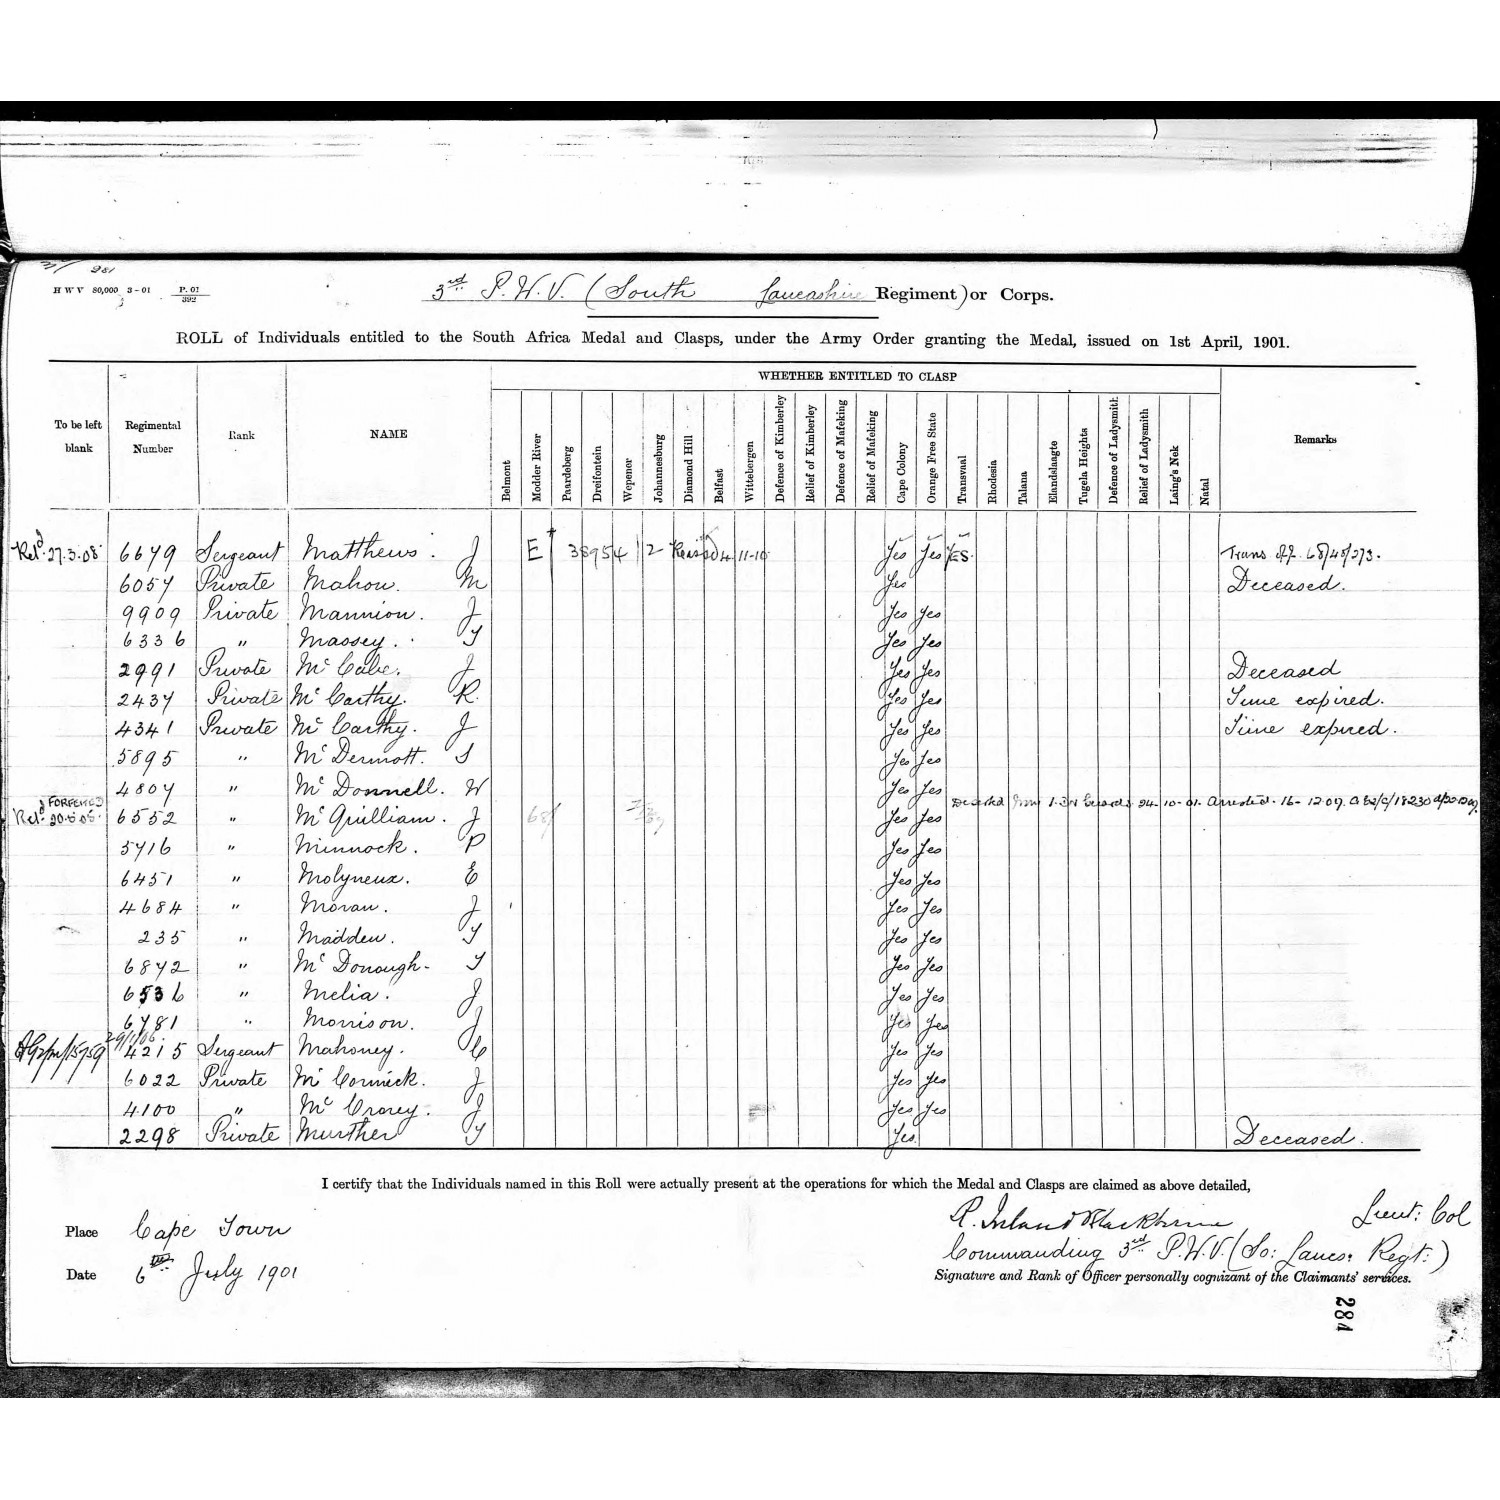 281
H W V 80,000 3-01 P. 01/392
3rd P.W.V. (South Lancashire Regiment) or Corps.
ROLL of Individuals entitled to the South Africa Medal and Clasps, under the Army Order granting the Medal, issued on 1st April, 1901.
WHETHER ENTITLED TO CLASP
To be left blank Regimental Number Rank NAME Belmont Modder River Paardeberg Dreifontein Wepener Johannesburg Diamond Hill Belfast Wittebergen Defence of Kimberley Relief of Kimberley Defence of Mafeking Relief of Mafeking Cape Colony Orange Free State Transvaal Rhodesia Talana Elandslaagte Tugela Heights Defence of Ladysmith Relief of Ladysmith Laing's Nek Natal Remarks
Reld 27.3.08 6679 Sergeant Matthews. J E 38954 2 11-10 Yes Yes YES. Trans 68/45/273.
6057 Private Mahon. M Yes Deceased.
9909 Private Mannion. J Yes Yes
6336 " Massey. T Yes Yes
2991 Private McCabe. J Yes Yes Deceased
2437 Private McCarthy. R. Yes Yes Time expired.
4341 Private McCarthy. J Yes Yes Time expired.
5895 " McDermott. S Yes Yes
4807 " McDonnell. W Yes Yes
FORFEITED Deserted from 24-10-01. Arrested. 16-12-07.
Reld 20.5.05. 6552 " McQuilliam. J 68/ Yes Yes
5716 " Minnock. P Yes Yes
6451 " Molyneux. E Yes Yes
4684 " Moran. J Yes Yes
235 " Madden. T Yes Yes
6872 " McDonough- T Yes Yes
6536 " Melia. J Yes Yes
6781 " Morrison. J Yes Yes
29/1/06.
4215 Sergeant Mahoney. C Yes Yes
6022 Private McCormick. J Yes Yes
4100 " McCrorey. J Yes Yes
2298 Private Murther T Yes. Deceased.
I certify that the Individuals named in this Roll were actually present at the operations for which the Medal and Clasps are claimed as above detailed,
Place Cape Town
R. Ireland Blackburne Lieut: Col
Commanding 3rd P.W.V. (So: Lancs: Regt:)
Date 6th July 1901
Signature and Rank of Officer personally cognizant of the Claimants' services.
284